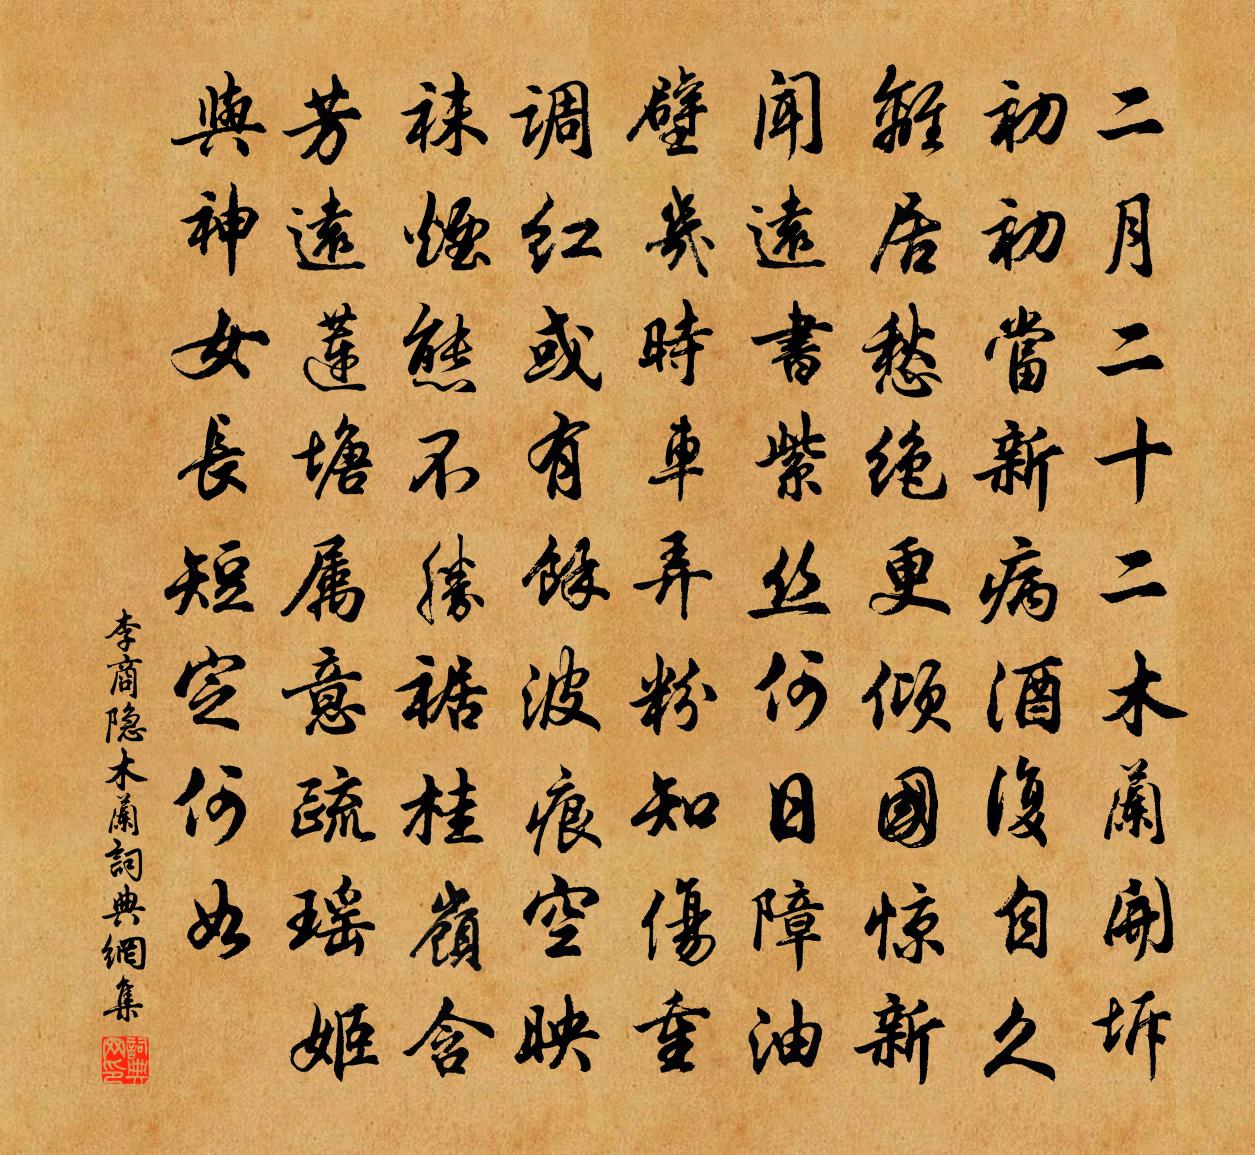 二月二十二木蘭開坼
初初當新病酒復自久
離居愁绝更倾國惊新
聞遠書紫丝何日障油
壁幾時車弄粉知傷重
调红或有餘波痕空映
袜煙態不勝裾桂嶺含
芳遠蓮塘属意疏瑶姬
與神女長短定何如
李商隐木蘭詞典網集
詞典网印